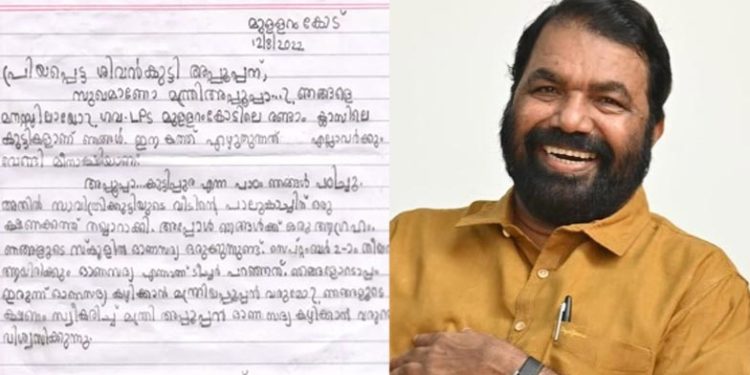 മുള്ളറംകോട്
12/8/2022
പ്രിയപ്പെട്ട ശിവൻകുട്ടി അപ്പൂപ്പന്,
സുഖമാണോ മന്ത്രിഅപ്പൂപ്പാ..? ഞങ്ങളെ
മനസ്സിലായോ? ഗവ.LPS മുള്ളറംകോടിലെ രണ്ടാം ക്ലാസിലെ
കുട്ടികളാണ് ഞങ്ങൾ. ഈ കത്ത് എഴുതുന്നത് എല്ലാവർക്കും
വേണ്ടി മീനാക്ഷിയാണ്.
അപ്പൂപ്പാ... കുട്ടിപ്പുര എന്ന പാഠം ഞങ്ങൾ പഠിച്ചു.
അതിൽ സാവിത്രിക്കുട്ടിയുടെ വീടിന്റെ പാലുകാച്ചിന് ഒരു
ക്ഷണക്കത്ത് തയ്യാറാക്കി. അപ്പോൾ ഞങ്ങൾക്ക് ഒരു ആഗ്രഹം.
ഞങ്ങളുടെ സ്കൂളിൽ ഓണസദ്യ ഒരുക്കുന്നുണ്ട്. സെപ്റ്റംബർ 2-ാം തീയതി
ആയിരിക്കും ഓണസദ്യ എന്നാണ് ടീച്ചർ പറഞ്ഞത്. ഞങ്ങളോടൊപ്പം
ഇരുന്ന് ഓണസദ്യ കഴിക്കാൻ മന്ത്രിയപ്പൂപ്പൻ വരുമോ? ഞങ്ങളുടെ
ക്ഷണം സ്വീകരിച്ച് മന്ത്രി അപ്പൂപ്പൻ ഓണ സദ്യ കഴിക്കാൻ
വിശ്വസിക്കുന്നു.